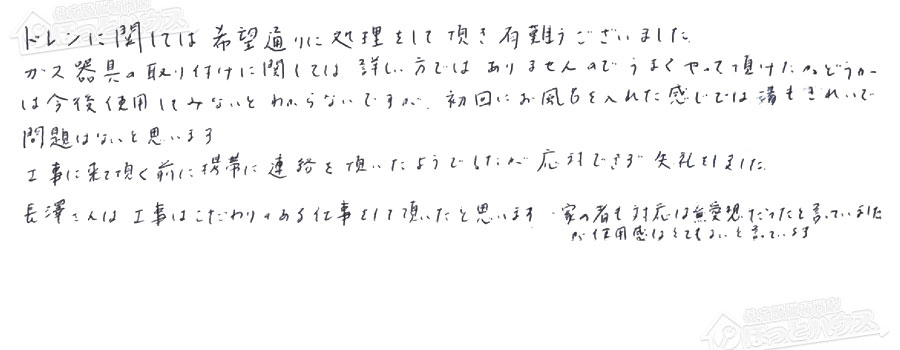 ドレンに関しては希望通りに処理をして頂き有難うございました。
ガス器具の取り付けに関しては詳しい方ではありませんのでうまくやって頂けたかどうか
は今後使用してみないとわからないですが、初回にお風呂を入れた感じでは湯もきれいで
問題はないと思います
工事に来て頂く前に携帯に連絡を頂いたようでしたが応対できず失礼をしました。
長澤さんは工事はこだわりのある仕事をして頂いたと思います 家の者も対応は無愛想だったと言っていました
が使用感はとてもよいと言っています
ほっとハウス
ほっとハウス